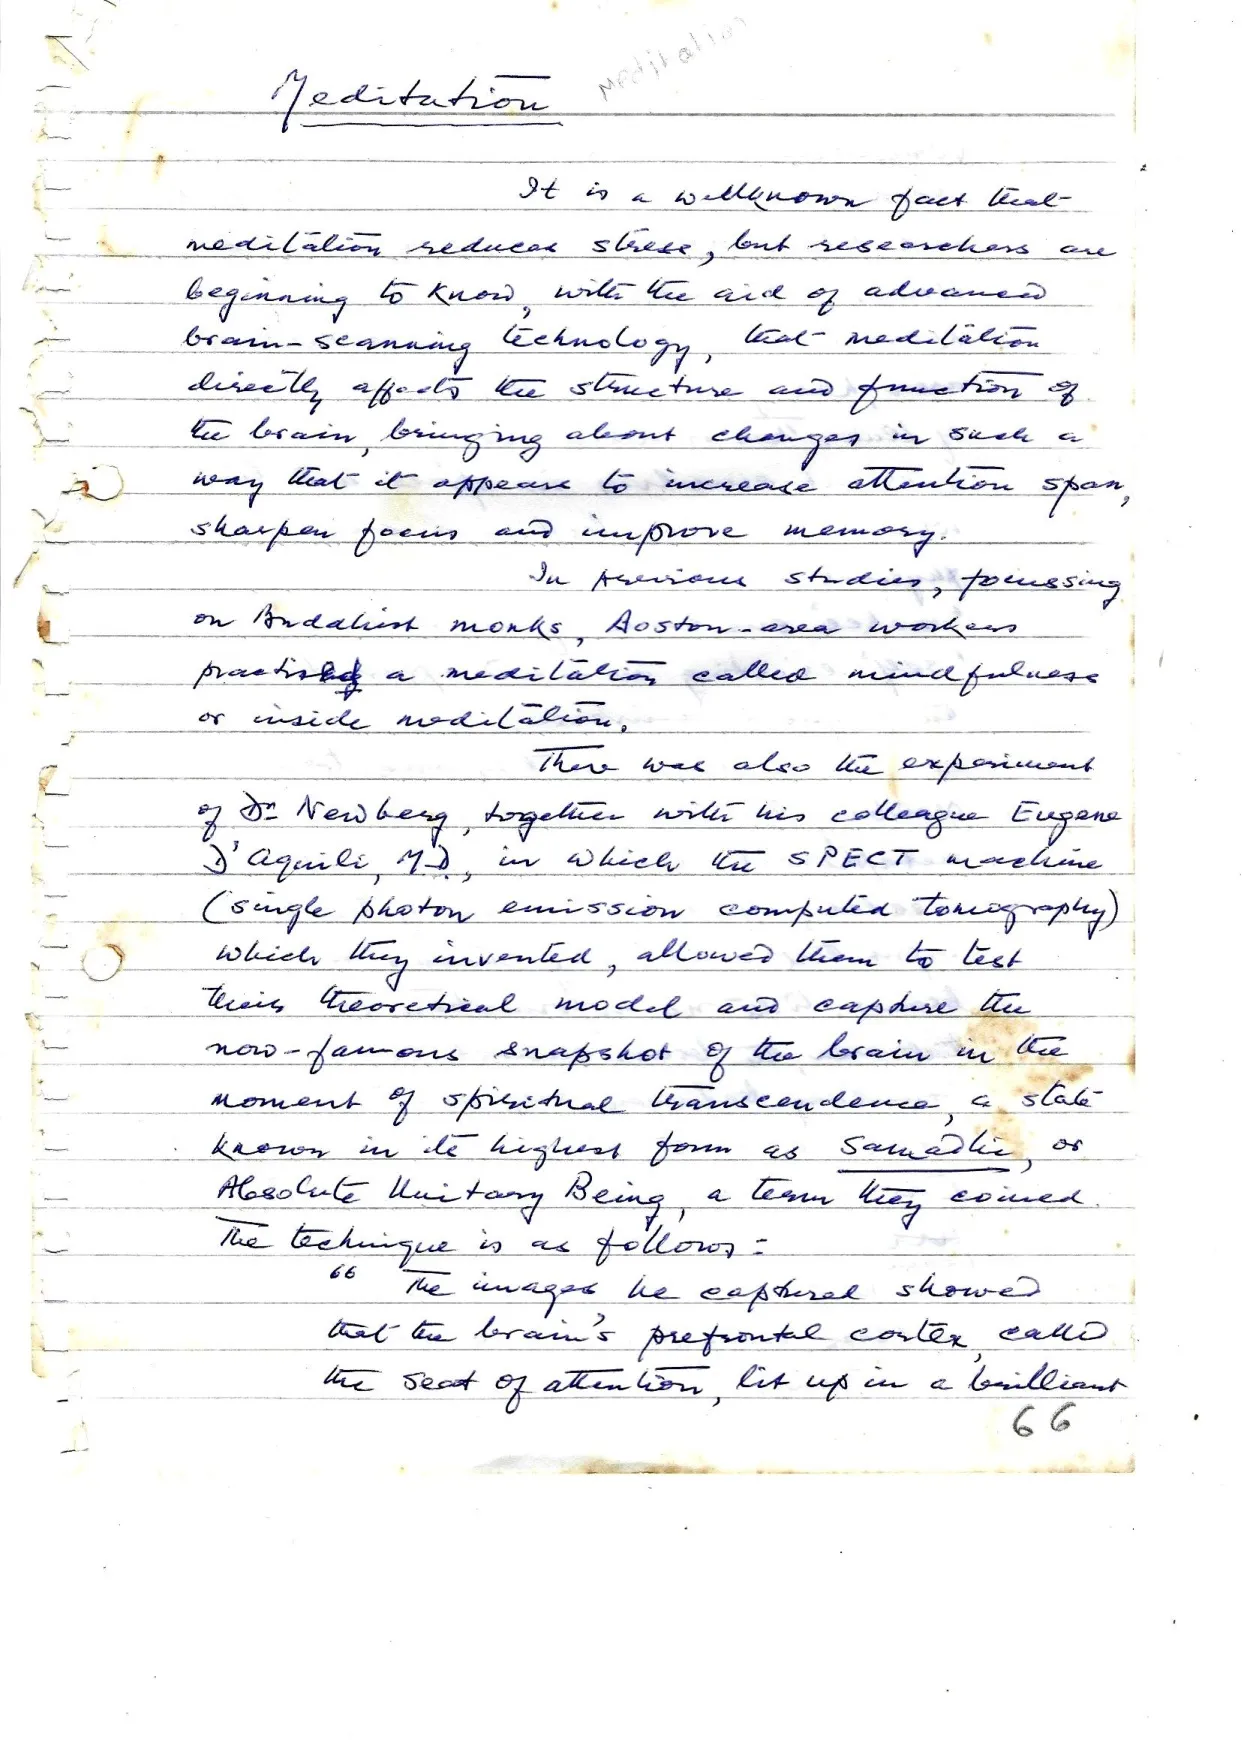 Meditation
Meditation
It is a wellknown fact that
meditation reduces stress, but researchers are
beginning to know, with the aid of advanced
brain-scanning technology, that meditation
directly affects the structure and function of
the brain, bringing about changes in such a
way that it appears to increase attention span,
sharpen focus and improve memory.
In previous studies, focussing
on Buddhist monks, Boston-area workers
practised a meditation called mindfulness
or inside meditation.
There was also the experiment
of Dr Newberg, together with his colleague Eugene
D'Aquili, M.D., in which the SPECT machine
(single photon emission computed tomography)
which they invented, allowed them to test
their theoretical model and capture the
now-famous snapshot of the brain in the
moment of spiritual transcendence, a state
known in its highest form as Samadhi, or
Absolute Unitary Being, a term they coined.
The technique is as follows:-
" The images he captured showed
that the brain's prefrontal cortex, called
the seat of attention, lit up in a brilliant
66